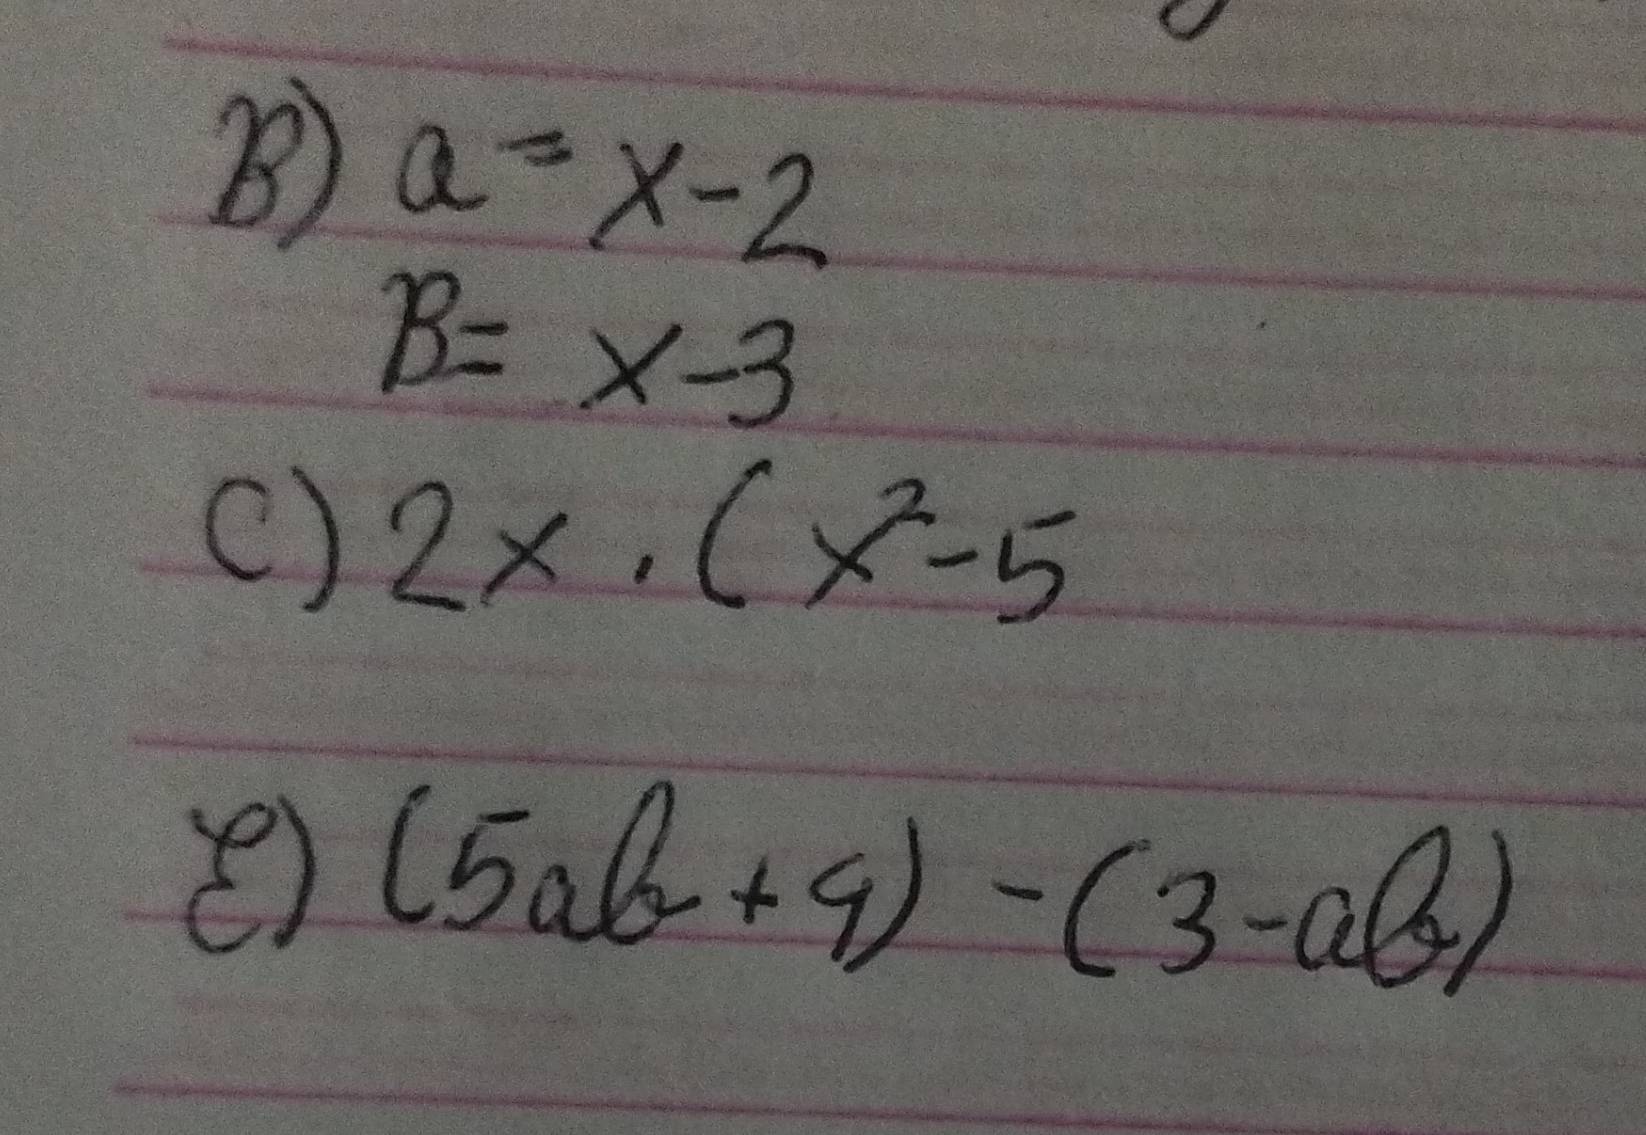 B) a = x-2
B= x-3
C) 2x . ( x²-5
E) (5ab + 9) - (3-ab)